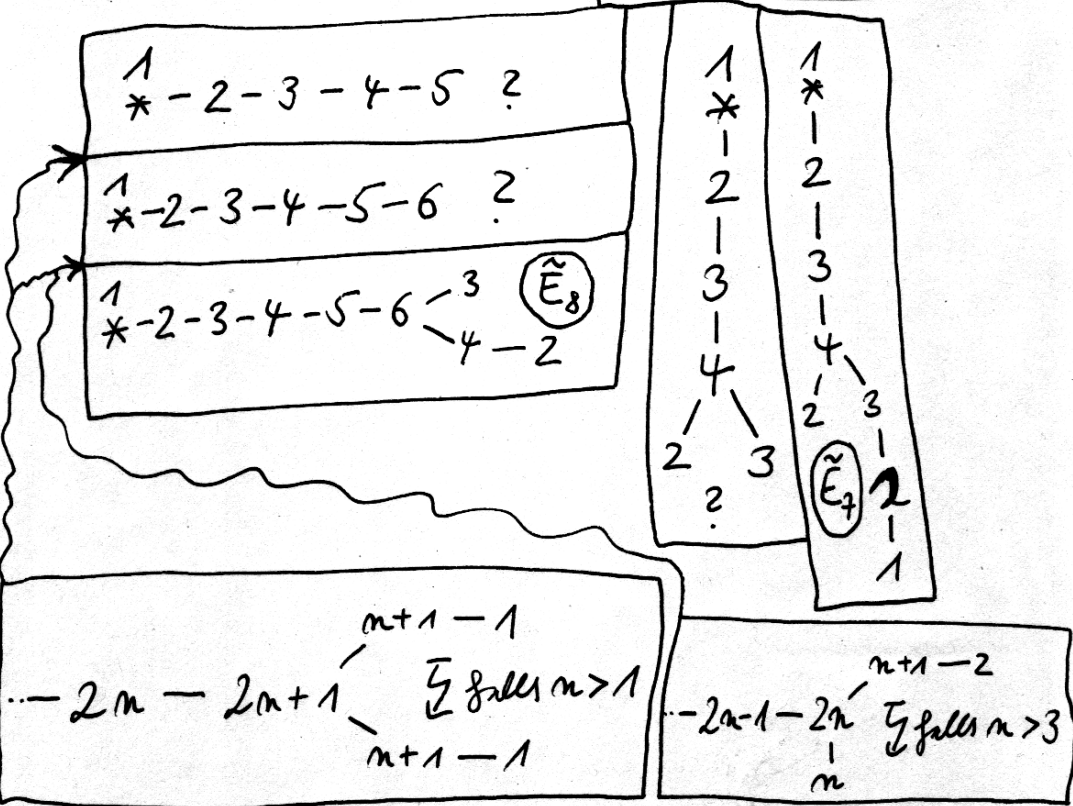 1
* - 2 - 3 - 4 - 5 ?
1
* - 2 - 3 - 4 - 5 - 6 ?
1
* - 2 - 3 - 4 - 5 - 6 - 3
4 - 2
Ẽ₈
1
*
2
3
4
2 3
?
1
*
2
3
4
2 3
Ẽ₇ 2
1
n+1 - 1
..- 2n - 2n+1 ↯ falls n>1
n+1 - 1
n+1 - 2
..- 2n-1 - 2n ↯ falls n>3
n